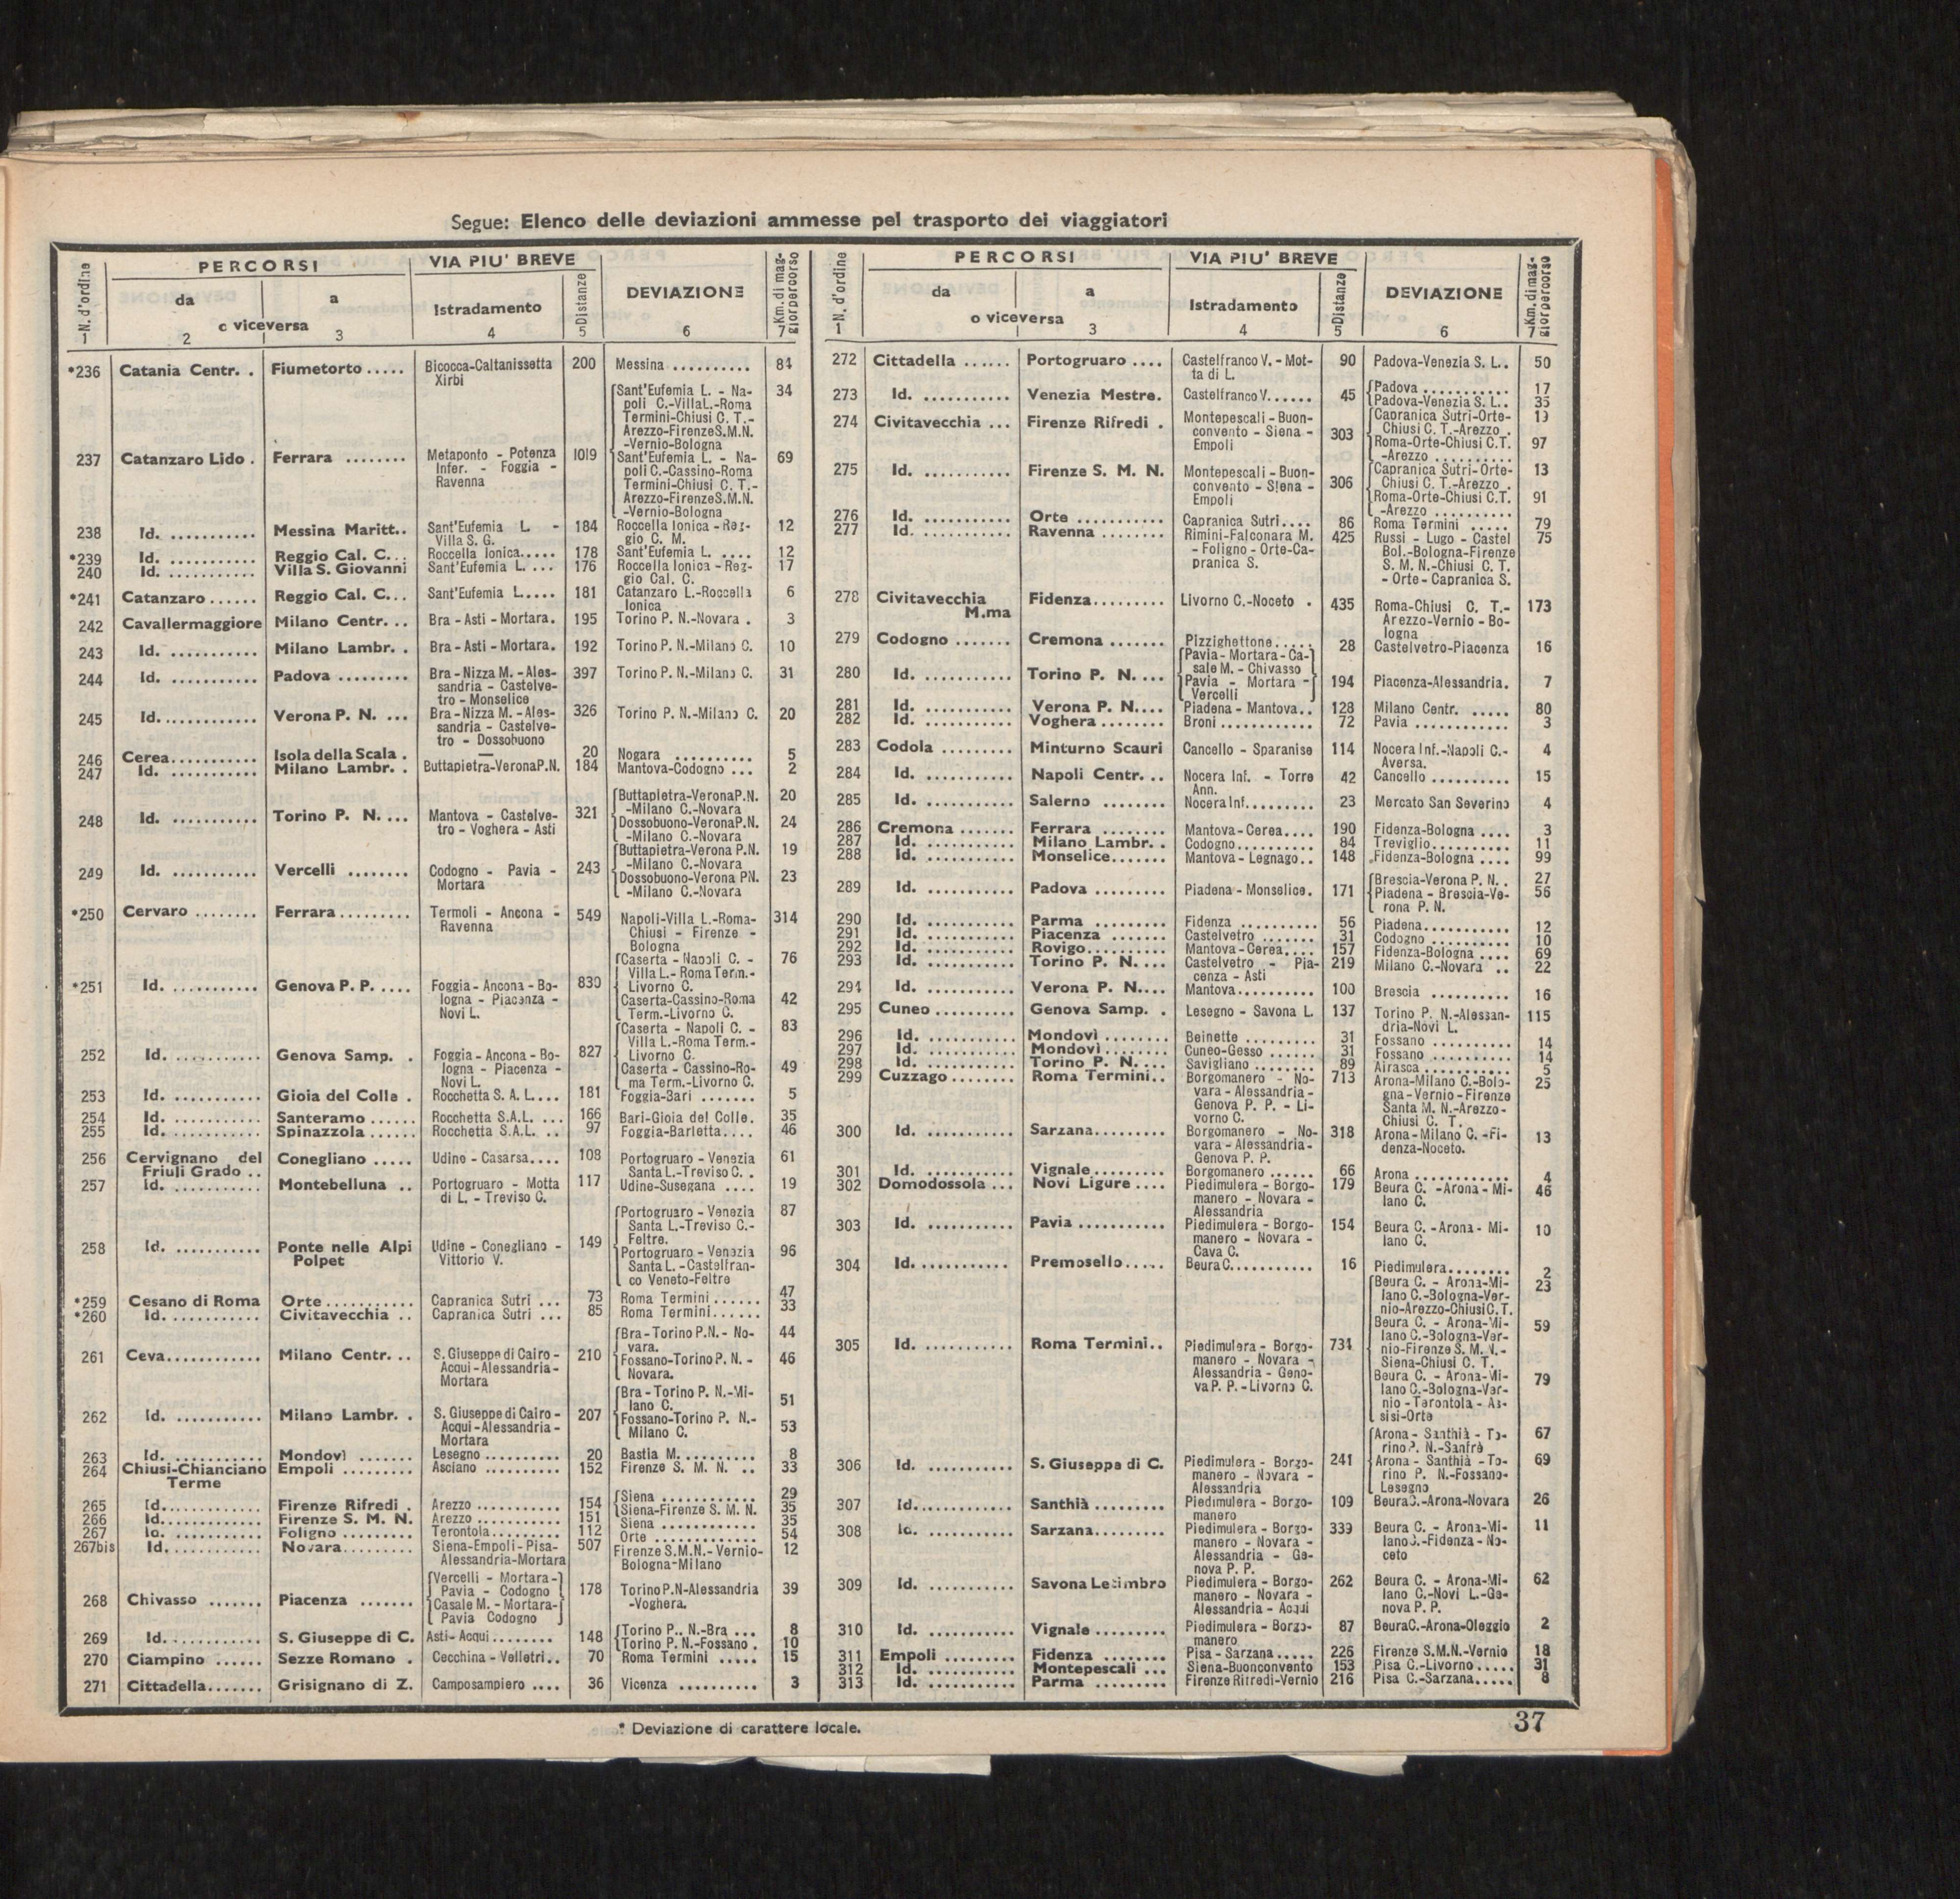 Segue: Elenco delle deviazioni ammesse pel trasporto dei viaggiatori
N. d'ordine PERCORSI VIA PIU' BREVE DEVIAZIONE Km. di maggior percorso
da a Istradamento Distanze
o viceversa
1 2 3 4 5 6 7
*236 Catania Centr. . Fiumetorto ..... Bicocca-Caltanissetta 200 Messina .......... 84
Xirbi
{Sant'Eufemia L. - Na- 34
poli C.-Villa L.-Roma
Termini-Chiusi C. T.-
Arezzo-Firenze S.M.N.
-Vernio-Bologna
237 Catanzaro Lido . Ferrara ........ Metaponto - Potenza 1019 {Sant'Eufemia L. - Na- 69
Infer. - Foggia - poli C.-Cassino-Roma
Ravenna Termini-Chiusi C. T.-
Arezzo-Firenze S.M.N.
-Vernio-Bologna
238 Id. ........... Messina Maritt.. Sant'Eufemia L - 184 Roccella Ionica - Reg- 12
Villa S. G. gio C. M.
*239 Id. ........... Reggio Cal. C... Roccella Ionica..... 178 Sant'Eufemia L. .... 12
240 Id. ........... Villa S. Giovanni Sant'Eufemia L. ... 176 Roccella Ionica - Reg- 17
gio Cal. C.
*241 Catanzaro ...... Reggio Cal. C... Sant'Eufemia L..... 181 Catanzaro L.-Roccella 6
Ionica
242 Cavallermaggiore Milano Centr. .. Bra - Asti - Mortara. 195 Torino P. N.-Novara . 3
243 Id. ........... Milano Lambr. . Bra - Asti - Mortara. 192 Torino P. N.-Milano C. 10
244 Id. ........... Padova ......... Bra - Nizza M. - Ales- 397 Torino P. N.-Milano C. 31
sandria - Castelve-
tro - Monselice
245 Id............ Verona P. N. ... Bra - Nizza M. - Ales- 326 Torino P. N.-Milano C. 20
sandria - Castelve-
tro - Dossobuono
246 Cerea........... Isola della Scala . — 20 Nogara .......... 5
247 Id. ........... Milano Lambr. . Buttapietra-Verona P.N. 184 Mantova-Codogno ... 2
{Buttapietra-Verona P.N. 20
-Milano C.-Novara
248 Id. ........... Torino P. N. ... Mantova - Castelve- 321 {Dossobuono-Verona P.N. 24
tro - Voghera - Asti -Milano C.-Novara
{Buttapietra-Verona P.N. 19
-Milano C.-Novara
249 Id. ........... Vercelli ........ Codogno - Pavia - 243 {Dossobuono-Verona PN. 23
Mortara -Milano C.-Novara
*250 Cervaro ........ Ferrara ......... Termoli - Ancona - 549 Napoli-Villa L.-Roma- 314
Ravenna Chiusi - Firenze -
Bologna
{Caserta - Napoli C. - 76
Villa L.- Roma Term.-
Livorno C.
*251 Id. ........... Genova P. P. .... Foggia - Ancona - Bo- 830 {Caserta-Cassino-Roma 42
logna - Piacenza - Term.-Livorno C.
Novi L.
{Caserta - Napoli C. - 83
Villa L.-Roma Term.-
Livorno C.
252 Id. ........... Genova Samp. . Foggia - Ancona - Bo- 827 {Caserta - Cassino-Ro- 49
logna - Piacenza - ma Term.-Livorno C.
Novi L.
253 Id. ........... Gioia del Colle . Rocchetta S. A. L.... 181 Foggia-Bari ....... 5
254 Id. ........... Santeramo ...... Rocchetta S.A.L. ... 166 Bari-Gioia del Colle. 35
255 Id. ........... Spinazzola ...... Rocchetta S.A.L. .. 97 Foggia-Barletta.... 46
256 Cervignano del Conegliano ..... Udine - Casarsa.... 108 Portogruaro - Venezia 61
Friuli Grado .. Santa L.-Treviso C. .
257 Id. ........... Montebelluna .. Portogruaro - Motta 117 Udine-Susegana .... 19
di L. - Treviso C.
{Portogruaro - Venezia 87
Santa L.-Treviso C.-
Feltre.
258 Id. ........... Ponte nelle Alpi Udine - Conegliano - 149 {Portogruaro - Venezia 96
Polpet Vittorio V. Santa L. -Castelfran-
co Veneto-Feltre
*259 Cesano di Roma Orte ........... Capranica Sutri ... 73 Roma Termini ...... 47
*260 Id. ........... Civitavecchia .. Capranica Sutri ... 85 Roma Termini...... 33
{Bra - Torino P.N. - No- 44
vara.
261 Ceva............ Milano Centr. .. S. Giuseppe di Cairo - 210 {Fossano-Torino P. N. - 46
Acqui - Alessandria - Novara.
Mortara
{Bra - Torino P. N.-Mi- 51
lano C.
262 Id. ........... Milano Lambr. . S. Giuseppe di Cairo - 207 {Fossano-Torino P. N.- 53
Acqui - Alessandria - Milano C.
Mortara
263 Id. ........... Mondovì ....... Lesegno .......... 20 Bastia M. ......... 8
264 Chiusi-Chianciano Empoli ......... Asciano .......... 152 Firenze S. M. N. .. 33
Terme
265 Id............ Firenze Rifredi . Arezzo ........... 154 {Siena ............ 29
{Siena-Firenze S. M. N. 35
266 Id............ Firenze S. M. N. Arezzo ........... 151 Siena ............ 35
267 Id. ........... Foligno ......... Terontola......... 112 Orte ............. 54
267bis Id............ Novara......... Siena-Empoli - Pisa- 507 Firenze S.M.N.- Vernio- 12
Alessandria-Mortara Bologna-Milano
{Vercelli - Mortara-}
Pavia - Codogno
268 Chivasso ....... Piacenza ....... {Casale M. - Mortara-} 178 Torino P.N-Alessandria 39
Pavia Codogno -Voghera.
269 Id. ........... S. Giuseppe di C. Asti- Acqui ........ 148 {Torino P.. N.-Bra ... 8
{Torino P. N.-Fossano . 10
270 Ciampino ...... Sezze Romano . Cecchina - Velletri.. 70 Roma Termini ..... 15
271 Cittadella....... Grisignano di Z. Camposampiero .... 36 Vicenza .......... 3
N. d'ordine PERCORSI VIA PIU' BREVE DEVIAZIONE Km. di maggior percorso
da a Istradamento Distanze
o viceversa
1 3 4 5 6 7
272 Cittadella ...... Portogruaro .... Castelfranco V. - Mot- 90 Padova-Venezia S. L.. 50
ta di L.
273 Id. ........... Venezia Mestre. Castelfranco V...... 45 {Padova ........... 17
{Padova-Venezia S. L.. 35
274 Civitavecchia ... Firenze Rifredi . Montepescali - Buon- 303 {Capranica Sutri-Orte- 19
convento - Siena - Chiusi C. T.-Arezzo .
Empoli {Roma-Orte-Chiusi C.T. 97
-Arezzo ..........
275 Id. ........... Firenze S. M. N. Montepescali - Buon- 306 {Capranica Sutri-Orte- 13
convento - Siena - Chiusi C. T.-Arezzo .
Empoli {Roma-Orte-Chiusi C.T. 91
-Arezzo ..........
276 Id. ........... Orte ........... Capranica Sutri.... 86 Roma Termini ..... 79
277 Id. ........... Ravenna ........ Rimini-Falconara M. 425 Russi - Lugo - Castel 75
- Foligno - Orte-Ca- Bol.-Bologna-Firenze
pranica S. S. M. N.-Chiusi C. T.
- Orte - Capranica S.
278 Civitavecchia Fidenza......... Livorno C.-Noceto . 435 Roma-Chiusi C. T.- 173
M.ma Arezzo-Vernio - Bo-
logna
279 Codogno ....... Cremona ....... Pizzighettone..... 28 Castelvetro-Piacenza 16
{Pavia - Mortara - Ca-}
sale M. - Chivasso
280 Id. ........... Torino P. N. ... {Pavia - Mortara -} 194 Piacenza-Alessandria. 7
Vercelli
281 Id. ........... Verona P. N.... Piadena - Mantova.. 128 Milano Centr. ..... 80
282 Id. ........... Voghera ........ Broni ............ 72 Pavia ............ 3
283 Codola ......... Minturno Scauri Cancello - Sparanise 114 Nocera Inf.-Napoli C.- 4
Aversa.
284 Id. ........... Napoli Centr. .. Nocera Inf. - Torre 42 Cancello .......... 15
Ann.
285 Id. ........... Salerno ........ Nocera Inf......... 23 Mercato San Severino 4
286 Cremona ....... Ferrara ........ Mantova - Cerea.... 190 Fidenza-Bologna .... 3
287 Id. ........... Milano Lambr. . Codogno .......... 84 Treviglio.......... 11
288 Id. ........... Monselice....... Mantova - Legnago.. 148 Fidenza-Bologna .... 99
289 Id. ........... Padova ......... Piadena - Monselice. 171 {Brescia-Verona P. N. . 27
{Piadena - Brescia-Ve- 56
rona P. N.
290 Id. ........... Parma ......... Fidenza .......... 56 Piadena........... 12
291 Id. ........... Piacenza ....... Castelvetro ....... 31 Codogno .......... 10
292 Id. ........... Rovigo.......... Mantova - Cerea.... 157 Fidenza-Bologna .... 69
293 Id. ........... Torino P. N. ... Castelvetro - Pia- 219 Milano C.-Novara .. 22
cenza - Asti
294 Id. ........... Verona P. N.... Mantova.......... 100 Brescia .......... 16
295 Cuneo .......... Genova Samp. . Lesegno - Savona L. 137 Torino P. N.-Alessan- 115
dria-Novi L.
296 Id. ........... Mondovì ........ Beinette ......... 31 Fossano .......... 14
297 Id. ........... Mondovì ........ Cuneo-Gesso ...... 31 Fossano .......... 14
298 Id. ........... Torino P. N. ... Savigliano ........ 89 Airasca ........... 5
299 Cuzzago ........ Roma Termini.. Borgomanero - No- 713 Arona-Milano C.-Bolo- 25
vara - Alessandria - gna-Vernio - Firenze
Genova P. P. - Li- Santa M. N.-Arezzo-
vorno C. Chiusi C. T.
300 Id. ........... Sarzana......... Borgomanero - No- 318 Arona-Milano C. -Fi- 13
vara - Alessandria - denza-Noceto.
Genova P. P.
301 Id. ........... Vignale ......... Borgomanero ...... 66 Arona ............ 4
302 Domodossola ... Novi Ligure .... Piedimulera - Borgo- 179 Beura C. -Arona - Mi- 46
manero - Novara - lano C.
Alessandria
303 Id. ........... Pavia ........... Piedimulera - Borgo- 154 Beura C. -Arona - Mi- 10
manero - Novara - lano C.
Cava C.
304 Id. ........... Premosello ..... Beura C........... 16 Piedimulera........ 2
{Beura C. - Arona-Mi- 23
lano C.-Bologna-Ver-
nio-Arezzo-Chiusi C. T.
Beura C. - Arona-Mi- 59
lano C.-Bologna-Ver-
305 Id. ........... Roma Termini.. Piedimulera - Borgo- 734 nio-Firenze S. M. N.-
manero - Novara - Siena-Chiusi C. T.
Alessandria - Geno- Beura C. - Arona-Mi- 79
va P. P. - Livorno C. lano C.-Bologna-Ver-
nio - Terontola - As-
sisi-Orte
{Arona - Santhià - To- 67
rino P. N.-Sanfrè
306 Id. ........... S. Giuseppe di C. Piedimulera - Borgo- 241 {Arona - Santhià - To- 69
manero - Novara - rino P. N.-Fossano-
Alessandria Lesegno
307 Id............ Santhià ......... Piedimulera - Borgo- 109 Beura C.-Arona-Novara 26
manero
308 Id. ........... Sarzana......... Piedimulera - Borgo- 339 Beura C. - Arona-Mi- 11
manero - Novara - lano C.-Fidenza - No-
Alessandria - Ge- ceto
nova P. P.
309 Id. ........... Savona Letimbro Piedimulera - Borgo- 262 Beura C. - Arona-Mi- 62
manero - Novara - lano C.-Novi L.-Ge-
Alessandria - Acqui nova P. P.
310 Id. ........... Vignale ......... Piedimulera - Borgo- 87 Beura C.-Arona-Oleggio 2
manero
311 Empoli ......... Fidenza ........ Pisa - Sarzana..... 226 Firenze S.M.N.-Vernio 18
312 Id. ........... Montepescali ... Siena-Buonconvento 153 Pisa C.-Livorno ..... 31
313 Id. ........... Parma ......... Firenze Rifredi-Vernio 216 Pisa C.-Sarzana..... 8
* Deviazione di carattere locale.
37